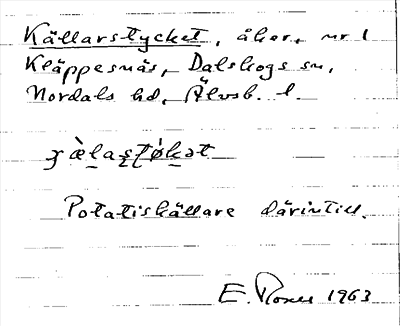 Källarstycket, åker, nr 1
Kläppesnäs, Dalskogs sn,
Nordals hd, Älvsb. l.
Potatiskällare därintill.
E. 1963